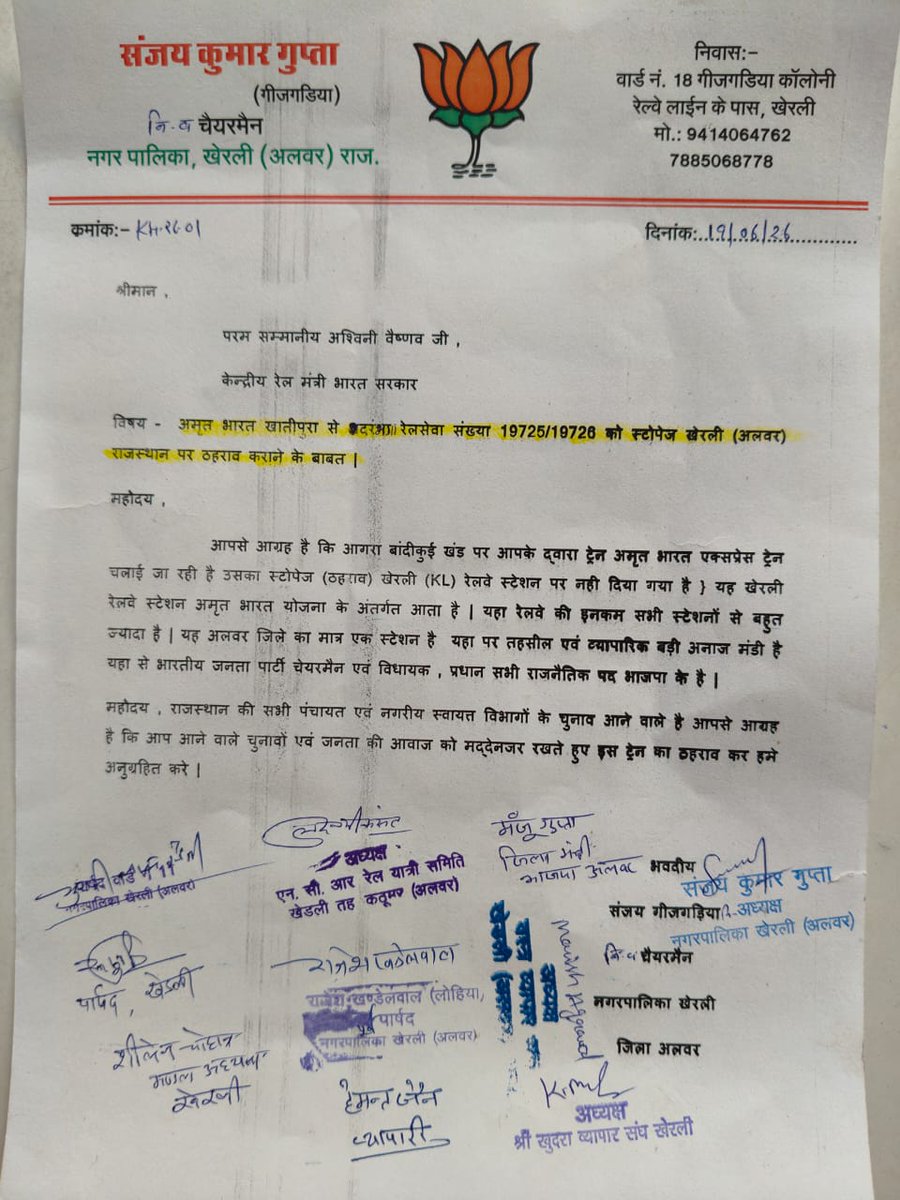 संजय कुमार गुप्ता
(गीजगडिया)
नि.व चैयरमैन
नगर पालिका, खेरली (अलवर) राज.
निवास:-
वार्ड नं. 18 गीजगडिया कॉलोनी
रेल्वे लाईन के पास, खेरली
मो.: 9414064762
7885068778
क्रमांक:- KH-26-01
दिनांक:..19/06/26
श्रीमान ,
परम सम्मानीय अश्विनी वैष्णव जी ,
केन्द्रीय रेल मंत्री भारत सरकार
विषय - अमृत भारत खातीपुरा से रेलसेवा संख्या 19725/19726 को स्टोपेज खेरली (अलवर)
राजस्थान पर ठहराव कराने के बाबत |
महोदय ,
आपसे आग्रह है कि आगरा बांदीकुई खंड पर आपके द्वारा ट्रेन अमृत भारत एक्सप्रेस ट्रेन
चलाई जा रही है उसका स्टोपेज (ठहराव) खेरली (KL) रेलवे स्टेशन पर नही दिया गया है } यह खेरली
रेलवे स्टेशन अमृत भारत योजना के अंतर्गत आता है | यहा रेलवे की इनकम सभी स्टेशनों से बहुत
ज्यादा है | यह अलवर जिले का मात्र एक स्टेशन है यहा पर तहसील एवं व्यापारिक बड़ी अनाज मंडी है
यहा से भारतीय जनता पार्टी चेयरमैन एवं विधायक , प्रधान सभी राजनैतिक पद भाजपा के है |
महोदय , राजस्थान की सभी पंचायत एवं नगरीय स्वायत्त विभागों के चुनाव आने वाले है आपसे आग्रह
है कि आप आने वाले चुनावों एवं जनता की आवाज को मद्देनजर रखते हुए इस ट्रेन का ठहराव कर हमे
अनुग्रहित करे |
पार्षद वार्ड
नगरपालिका खेरली (अलवर)
अध्यक्ष
एन. सी. आर रेल यात्री समिति
खेडली तह कठूमर (अलवर)
मंजू गुप्ता
जिला मंत्री
भाजपा अलवर
भवदीय
संजय कुमार गुप्ता
अध्यक्ष
नगरपालिका खेरली (अलवर)
संजय गीजगड़िया
नि.व चैयरमैन
नगरपालिका खेरली
जिला अलवर
पार्षद, खेडली
राजेश खण्डेलवाल
राजेश खण्डेलवाल (लोहिया,
पूर्व पार्षद
नगरपालिका खेरली (अलवर)
अध्यक्ष
Manish Aggarwal
मण्डल अध्यक्ष
खेरली
हेमन्त जैन
व्यापारी
अध्यक्ष
श्री खुदरा व्यापार संघ खेरली